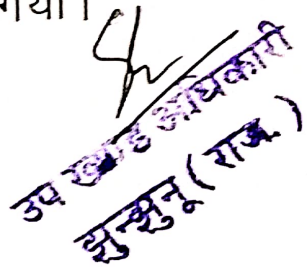 गया।
उप खण्ड अधिकारी
झुन्झुनू (राज.)